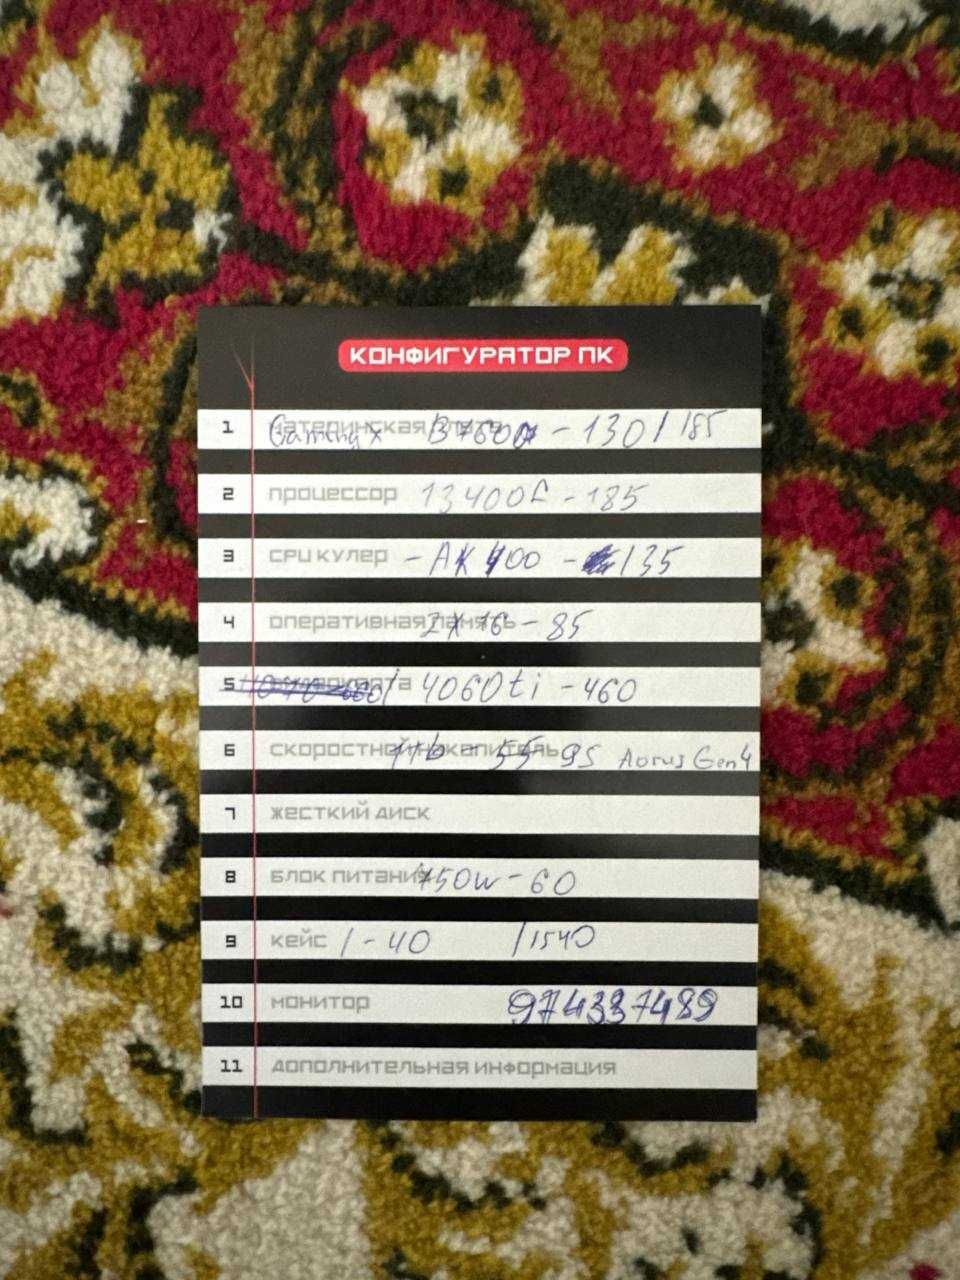 КОНФИГУРАТОР ПК
1 материнская плата Gaming x B760 - 130 / 185
2 процессор 13400f - 185
3 CPU кулер - AK 400 - /35
4 оперативная память 2x16 - 85
5 видеокарта / 4060ti - 460
6 скоростной накопитель 1Tb - 55 95 Aorus Gen4
7 жесткий диск
8 блок питания 750w - 60
9 кейс / - 40 /1540
10 монитор 974337489
11 дополнительная информация